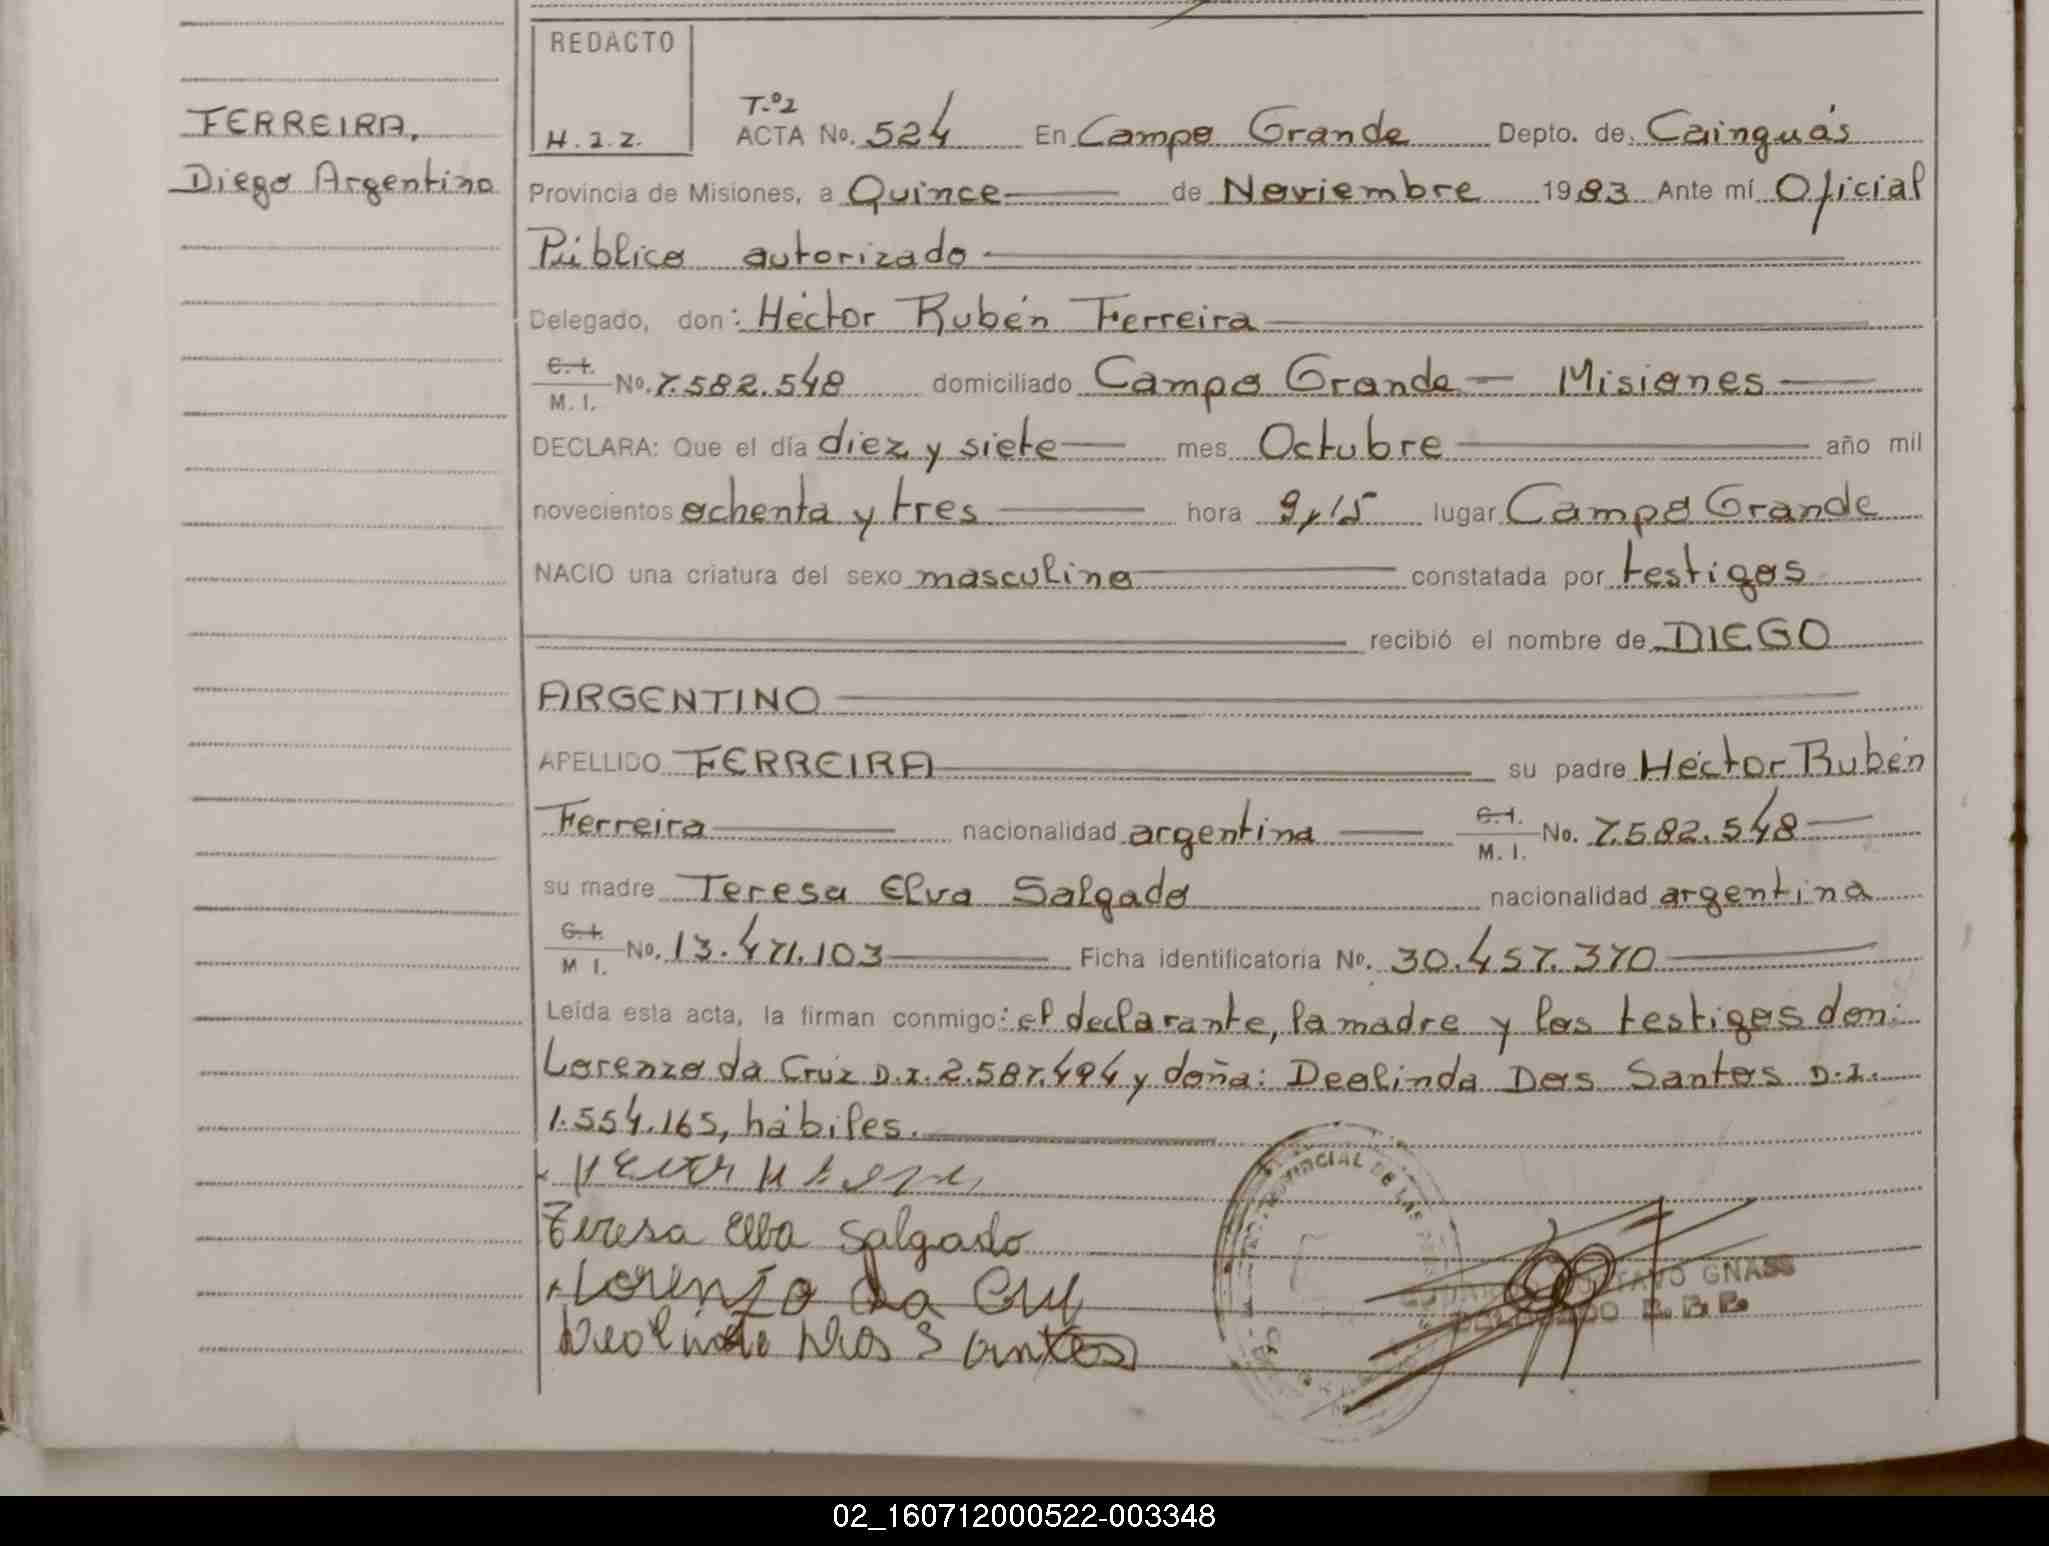 REDACTO
H.J.Z.
FERREIRA,
Diego Argentino
T.º2
ACTA No. 524 En Campo Grande Depto. de: Cainguás
Provincia de Misiones, a Quince de Noviembre 1983 Ante mí Oficial
Público autorizado
Delegado, don: Héctor Rubén Ferreira
C.I. M.I. No. 7.582.548 domiciliado Campo Grande - Misiones
DECLARA: Que el día diez y siete mes Octubre año mil
novecientos ochenta y tres hora 9,15 lugar Campo Grande
NACIO una criatura del sexo masculino constatada por testigos
recibió el nombre de DIEGO
ARGENTINO
APELLIDO FERREIRA su padre Héctor Rubén
Ferreira nacionalidad argentina C.I. M.I. No. 7.582.548
su madre Teresa Elva Salgado nacionalidad argentina
C.I. M I. No. 13.471.103 Ficha identificatoria No. 30.457.370
Leída esta acta, la firman conmigo: el declarante, la madre y los testigos don:
Lorenzo da Cruz D.I. 2.587.494 y doña: Deolinda Dos Santos D.I.
1.554.165, hábiles.
Teresa Elba Salgado
Lorenzo da Cruz
Deolinda Dos Santos
PROVINCIAL DE LAS
GUSTAVO GNASS
DELEGADO
02_160712000522-003348